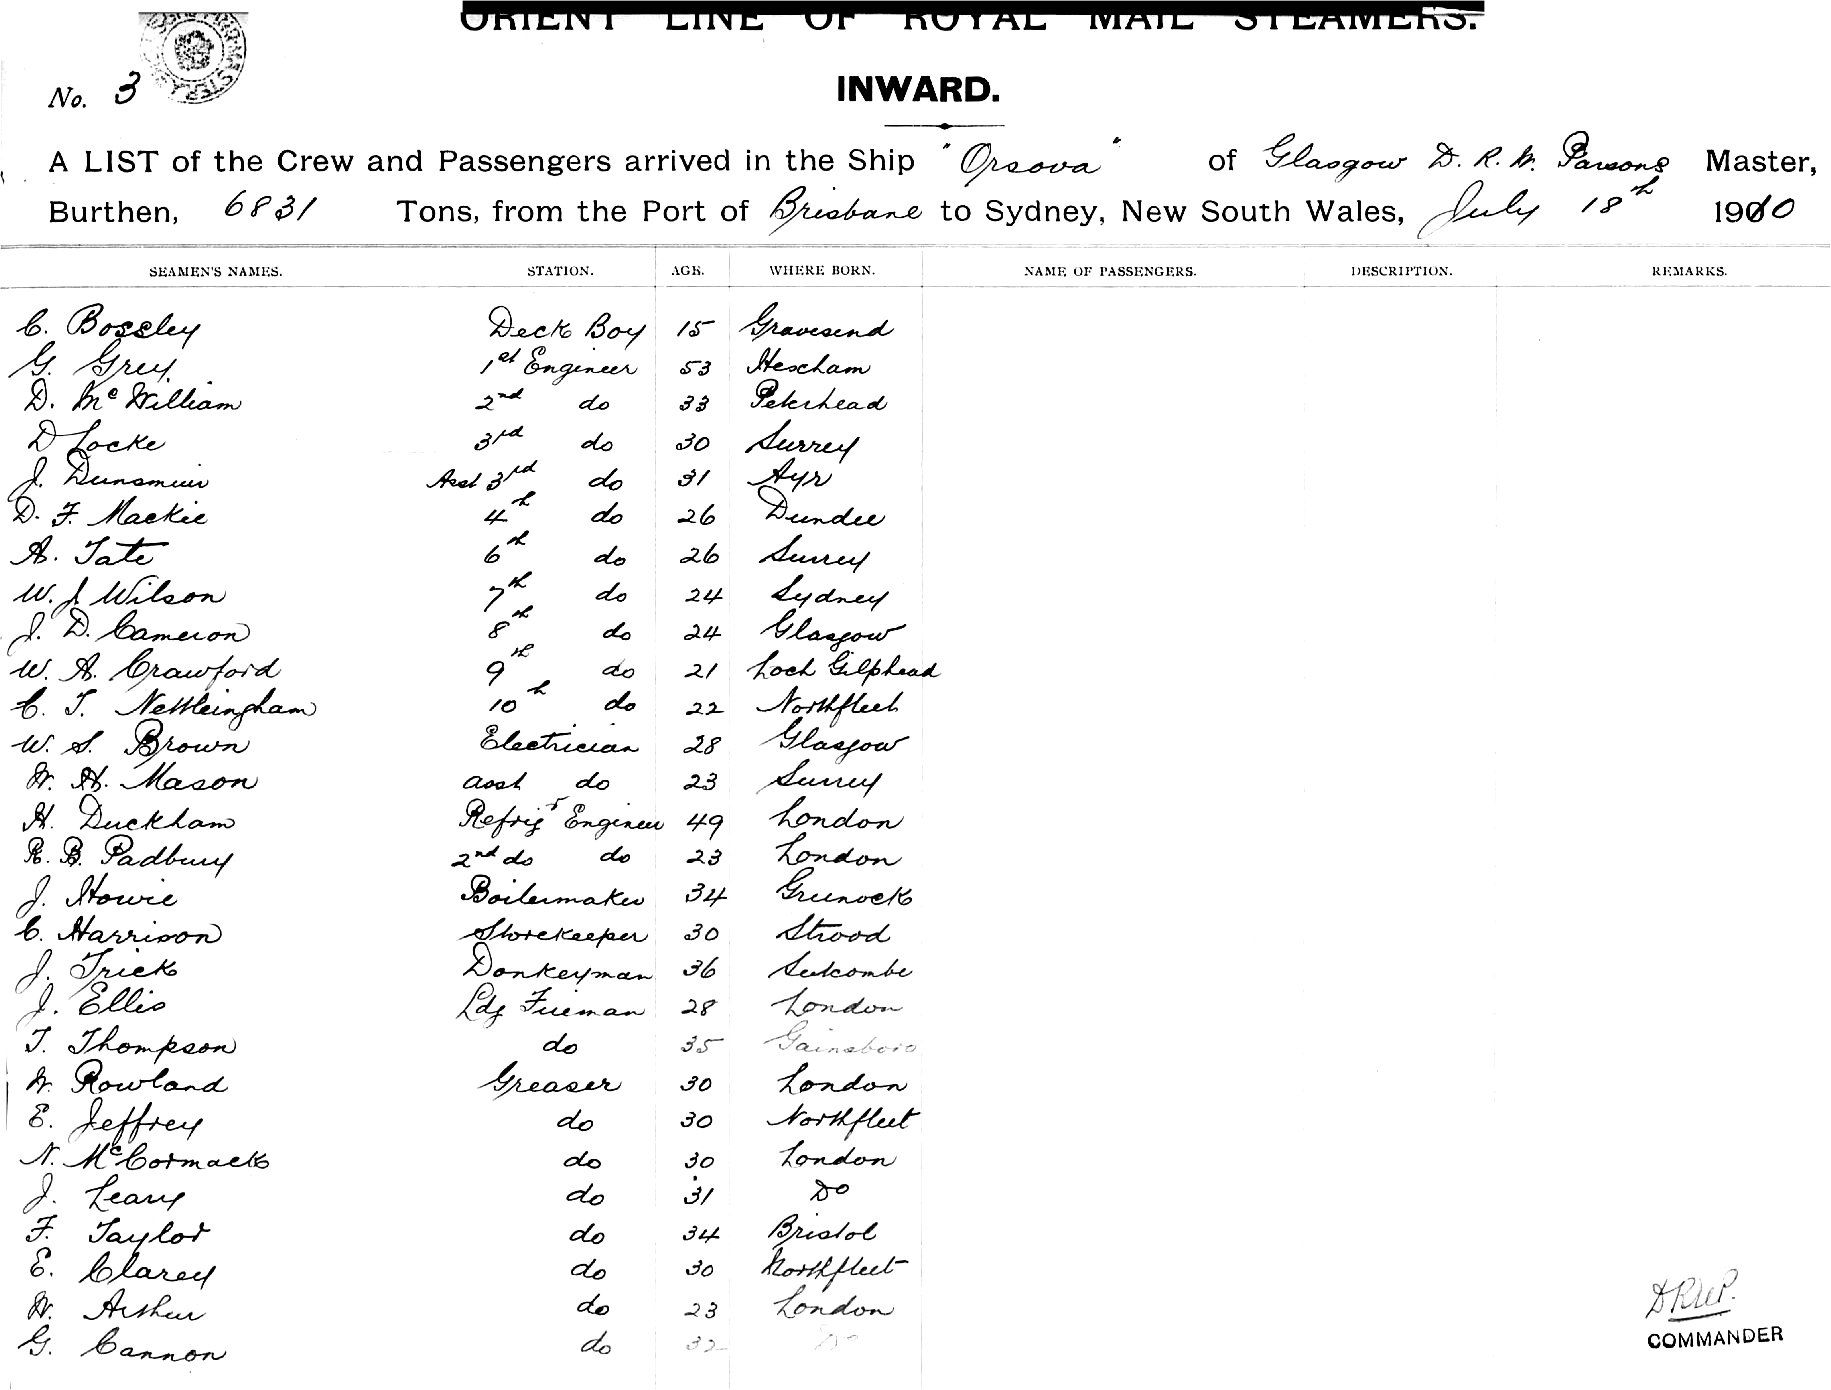 ORIENT LINE OF ROYAL MAIL STEAMERS.
No. 3
INWARD.
A LIST of the Crew and Passengers arrived in the Ship "Orsova" of Glasgow D. R. W. Parsons Master,
Burthen, 6831 Tons, from the Port of Brisbane to Sydney, New South Wales, July 18th 1910
SEAMEN'S NAMES. STATION. AGE. WHERE BORN. NAME OF PASSENGERS. DESCRIPTION. REMARKS.
C. Bossley Deck Boy 15 Gravesend
G. Grey 1st Engineer 53 Hexham
D. McWilliam 2nd do 33 Peterhead
D Locke 3rd do 30 Surrey
J. Dunsmuir Asst 3rd do 31 Ayr
D. F. Mackie 4th do 26 Dundee
A. Tate 6th do 26 Surrey
W. J. Wilson 7th do 24 Sydney
J. D. Cameron 8th do 24 Glasgow
W. A. Crawford 9th do 21 Loch Gilphead
C. T. Nettleingham 10th do 22 Northfleet
W. S. Brown Electrician 28 Glasgow
W. H. Mason asst do 23 Surrey
H. Duckham Refrigr Engineer 49 London
R. B. Padbury 2nd do do 23 London
J. Howie Boilermaker 34 Greenock
C. Harrison Storekeeper 30 Strood
J. Trick Donkeyman 36 Sutcombe
J. Ellis Ldg Fireman 28 London
T. Thompson do 35 Gainsboro
W. Rowland Greaser 30 London
E. Jeffrey do 30 Northfleet
N. McCormack do 30 London
J. Leary do 31 Do
F. Taylor do 34 Bristol
E. Clarey do 30 Northfleet
W. Arthur do 23 London
G. Cannon do 32 Do
DRWP.
COMMANDER